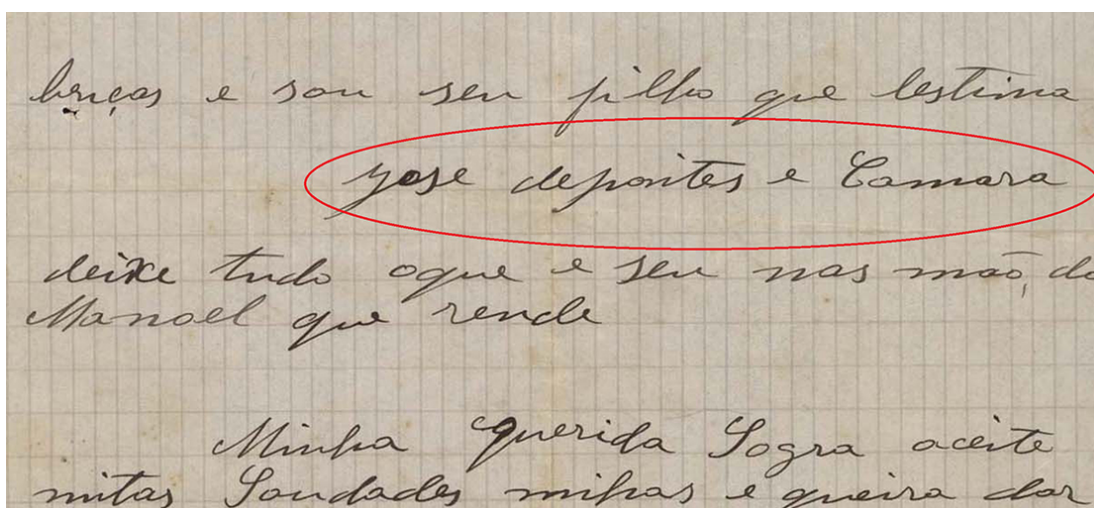 benças e sou seu filho que lestima
yose depontes e Camara
deixe tudo oque e seu nas mão, do
Manoel que rende
Minha querida Sogra aceite
mitas Soudades mihas e queira dar